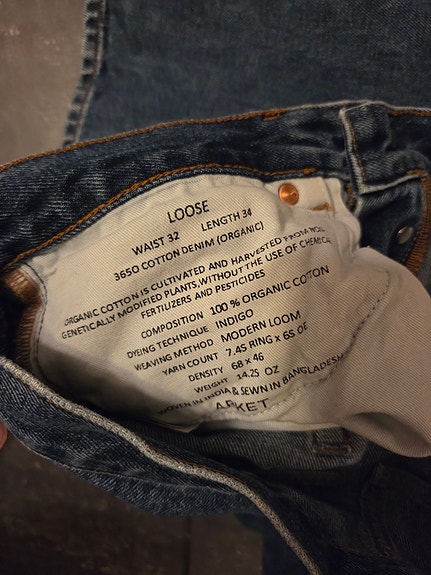 LOOSE
WAIST 32 LENGTH 34
3650 COTTON DENIM (ORGANIC)
ORGANIC COTTON IS CULTIVATED AND HARVESTED FROM NON
GENETICALLY MODIFIED PLANTS, WITHOUT THE USE OF CHEMICAL
FERTILIZERS AND PESTICIDES
COMPOSITION 100 % ORGANIC COTTON
DYEING TECHNIQUE INDIGO
WEAVING METHOD MODERN LOOM
YARN COUNT 7.45 RING X 6S OE
DENSITY 68 x 46
WEIGHT 14.25 OZ
WOVEN IN INDIA & SEWN IN BANGLADESH
ARKET